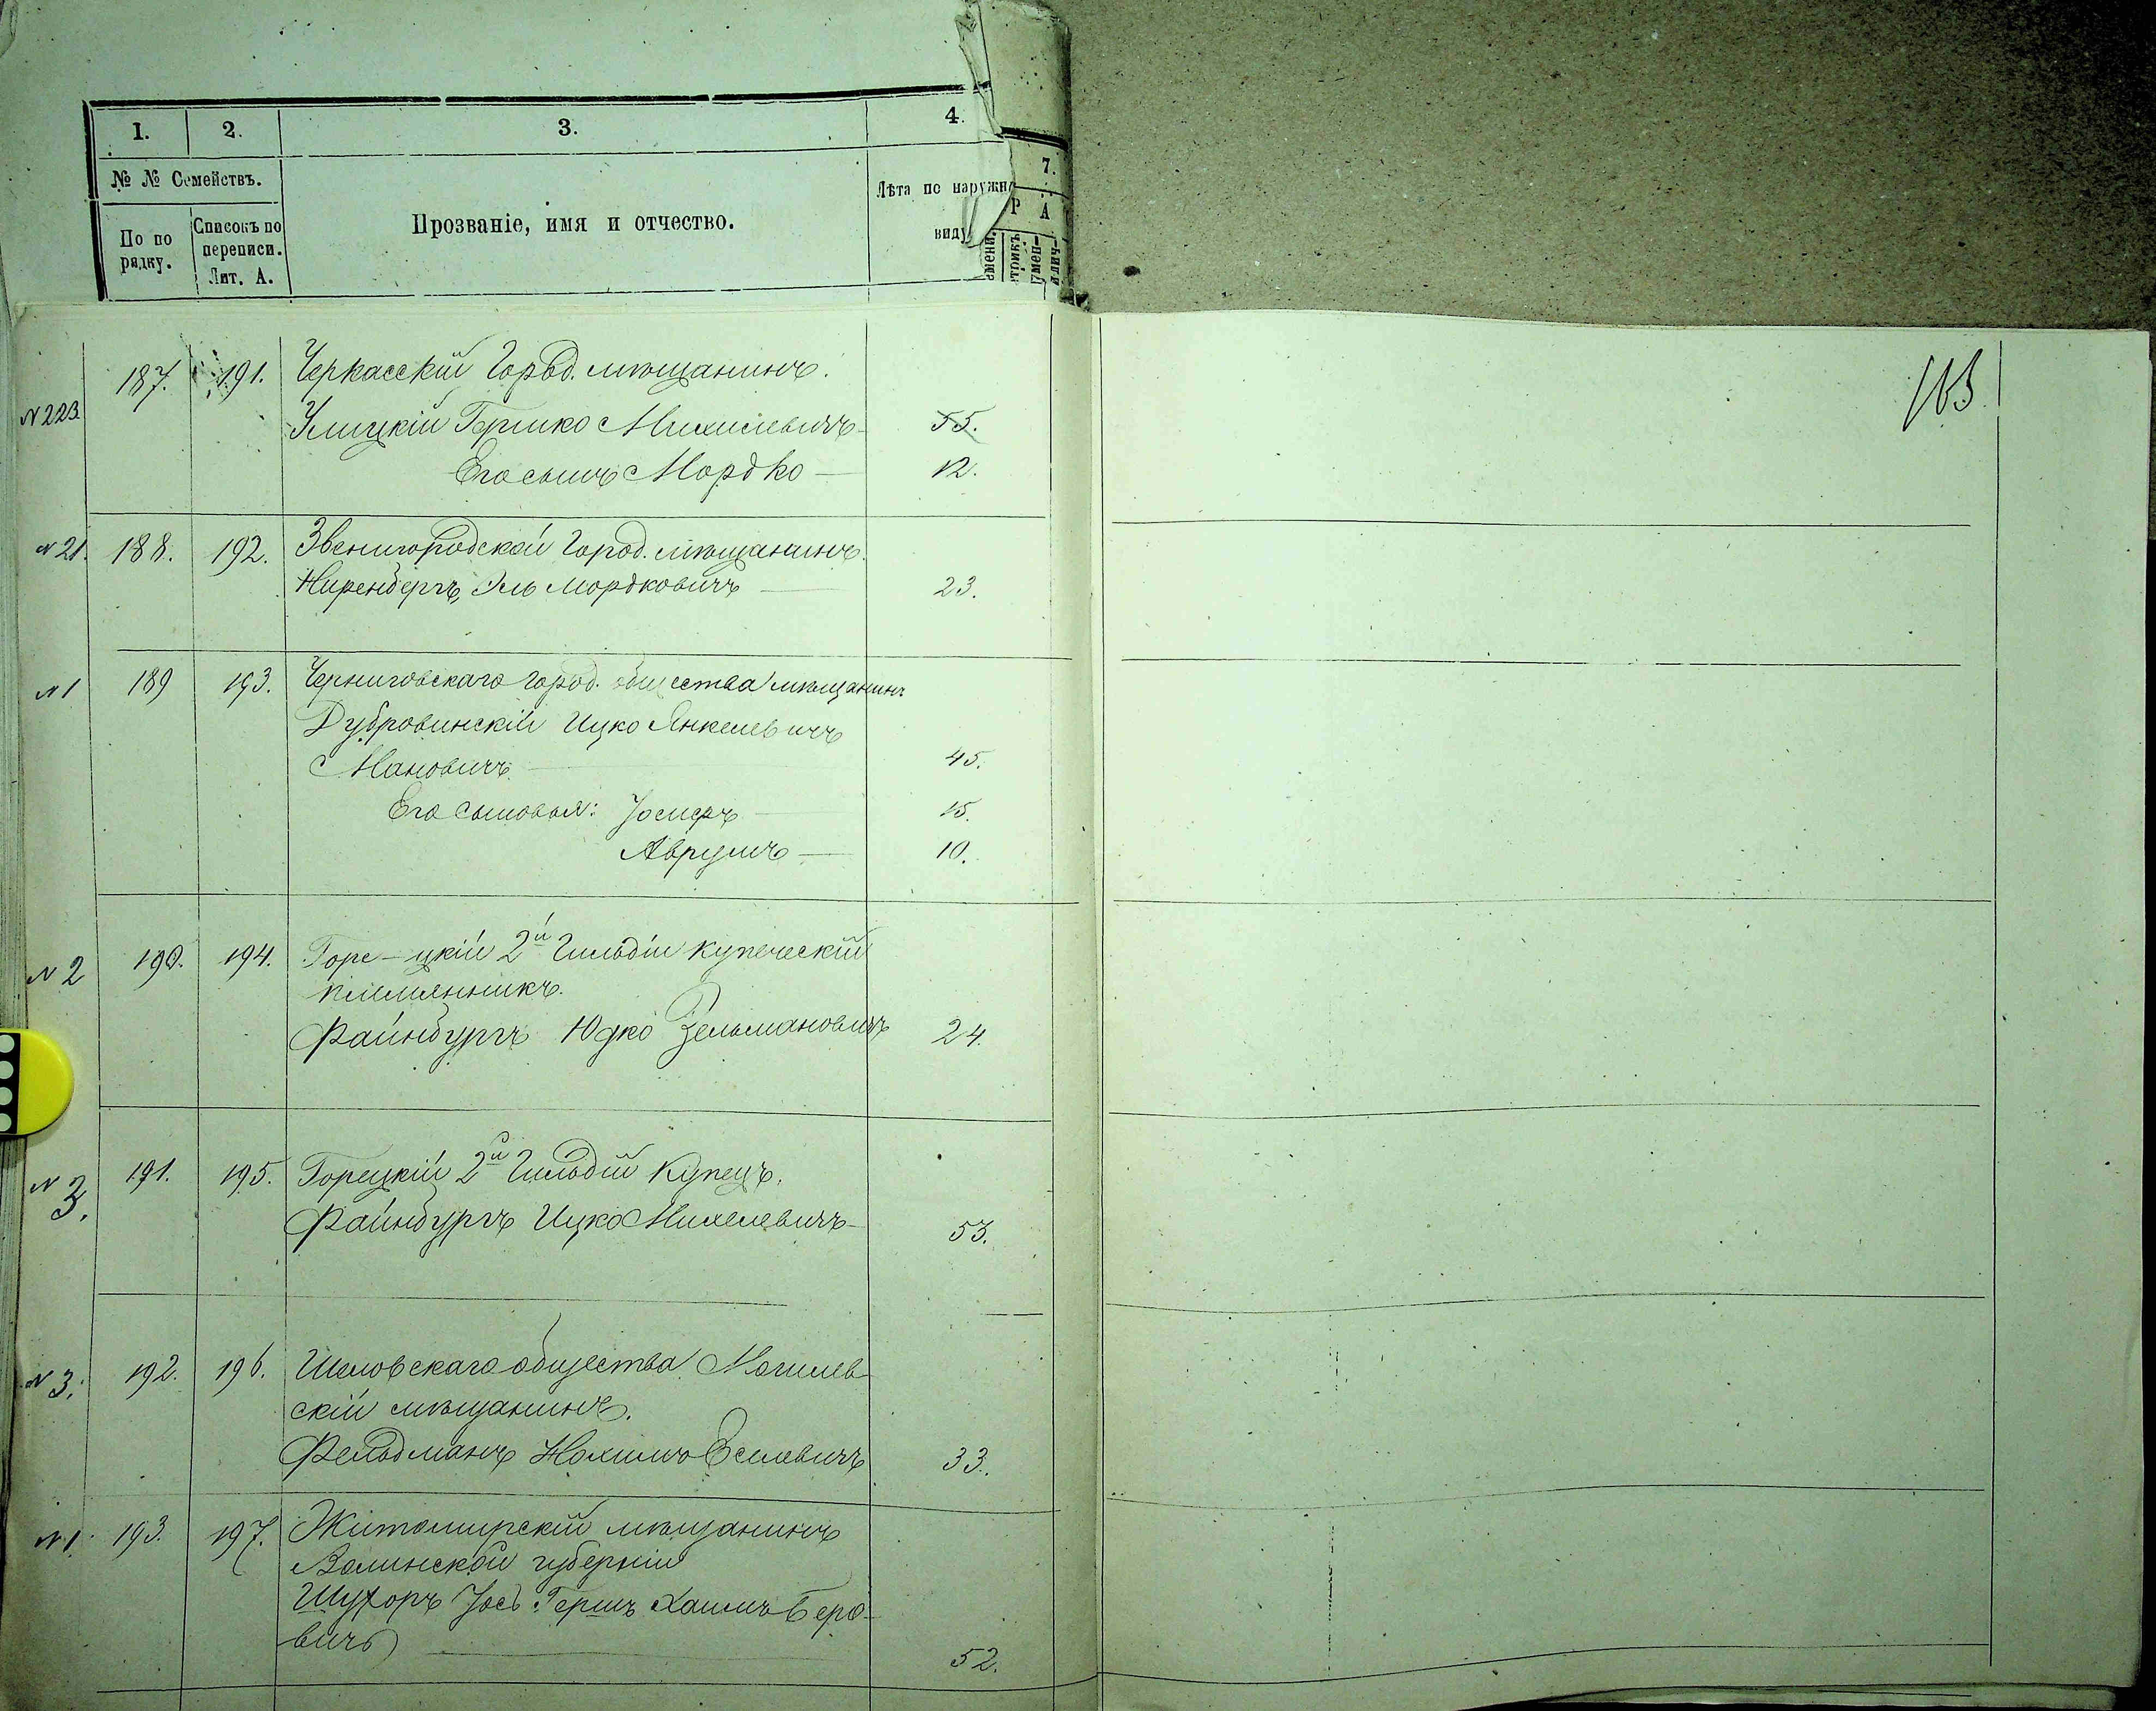 1. 2. 3. 4.
7.
№ № Семействъ.
По по рядку.
Списокъ по переписи. Лит. А.
Прозваніе, имя и отчество.
Лѣта по наружн
виду
Р А
N 223 187. 191. Черкасскій Город. мѣщанинъ.
Улицкій Гершко Михилевичъ 55.
Его сынъ Мордко 12.
N 21. 188. 192. Звенигородской Город. мѣщанинъ.
Ниренбергъ, Эль Мордковичъ 23.
N 1 189 193. Черниговскаго город. общества мѣщанинъ
Дубровинскій Ицко Янкелевичъ
Мановичъ 45.
Его сыновья: Іосифъ 15.
Аврумъ 10.
N 2 190. 194. Горе-цкій 2й Гильдіи купеческій
племянникъ.
Файнбургъ Юдко Зельмановичъ 24.
N 3. 191. 195. Горецкій 2й Гильдіи Купецъ.
Файнбургъ Ицко Михелевичъ 53.
N 3. 192. 196. Шкловскаго общества Могилев
скій мѣщанинъ.
Фельдманъ Нохимъ Еселевичъ 33.
N 1. 193. 197. Житомирскій мѣщанинъ
Волинской губерніи
Шухоръ Іось Гершъ Хаимъ Беро-
вичъ 52.